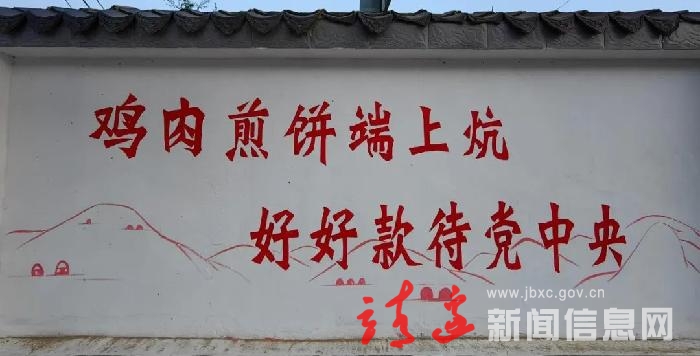 鸡肉煎饼端上炕
好好款待党中央
www.jbxc.gov.cn
靖边 新闻信息网